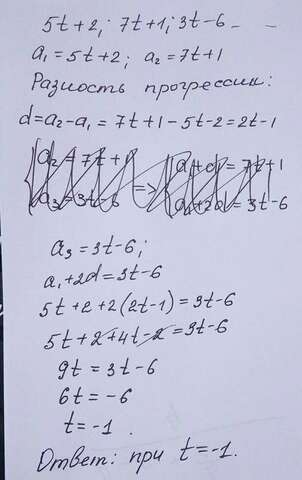 5t+2; 7t+1; 3t-6 - -
a₁=5t+2; a₂=7t+1
Разность прогрессии:
d=a₂-a₁=7t+1-5t-2=2t-1
a₂=7t+1 => a₁+d=7t+1
a₃=3t-6 a₁+2d=3t-6
a₃=3t-6;
a₁+2d=3t-6
5t+2+2(2t-1)=3t-6
5t+2+4t-2=3t-6
9t=3t-6
6t=-6
t=-1.
Ответ: при t=-1.